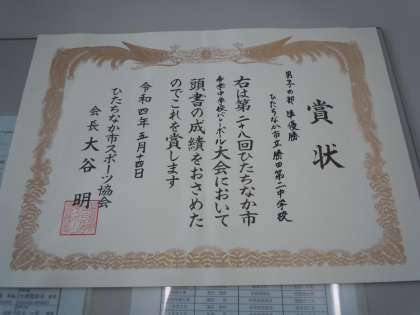 賞状
男子の部 準優勝
ひたちなか市立勝田第二中学校
右は第二十八回ひたちなか市
中学校バレーボール大会において
頭書の成績をおさめた
のでこれを賞します
令和四年五月十四日
ひたちなか市スポーツ協会
会長 大谷 明